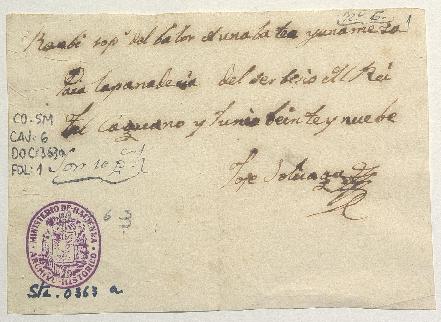 Recibi 10 p.s del balor de una batea y una mesa
para la panaderia del serbicio del Rei
Caguano y Junio beinte y nuebe
Jose
Son 10 p.s
CO-SM
CAJ: 6
DOC: 363a
FOL: 1
MINISTERIO DE HACIENDA
ARCHIVO HISTORICO
6
1
Sta. 0363 a